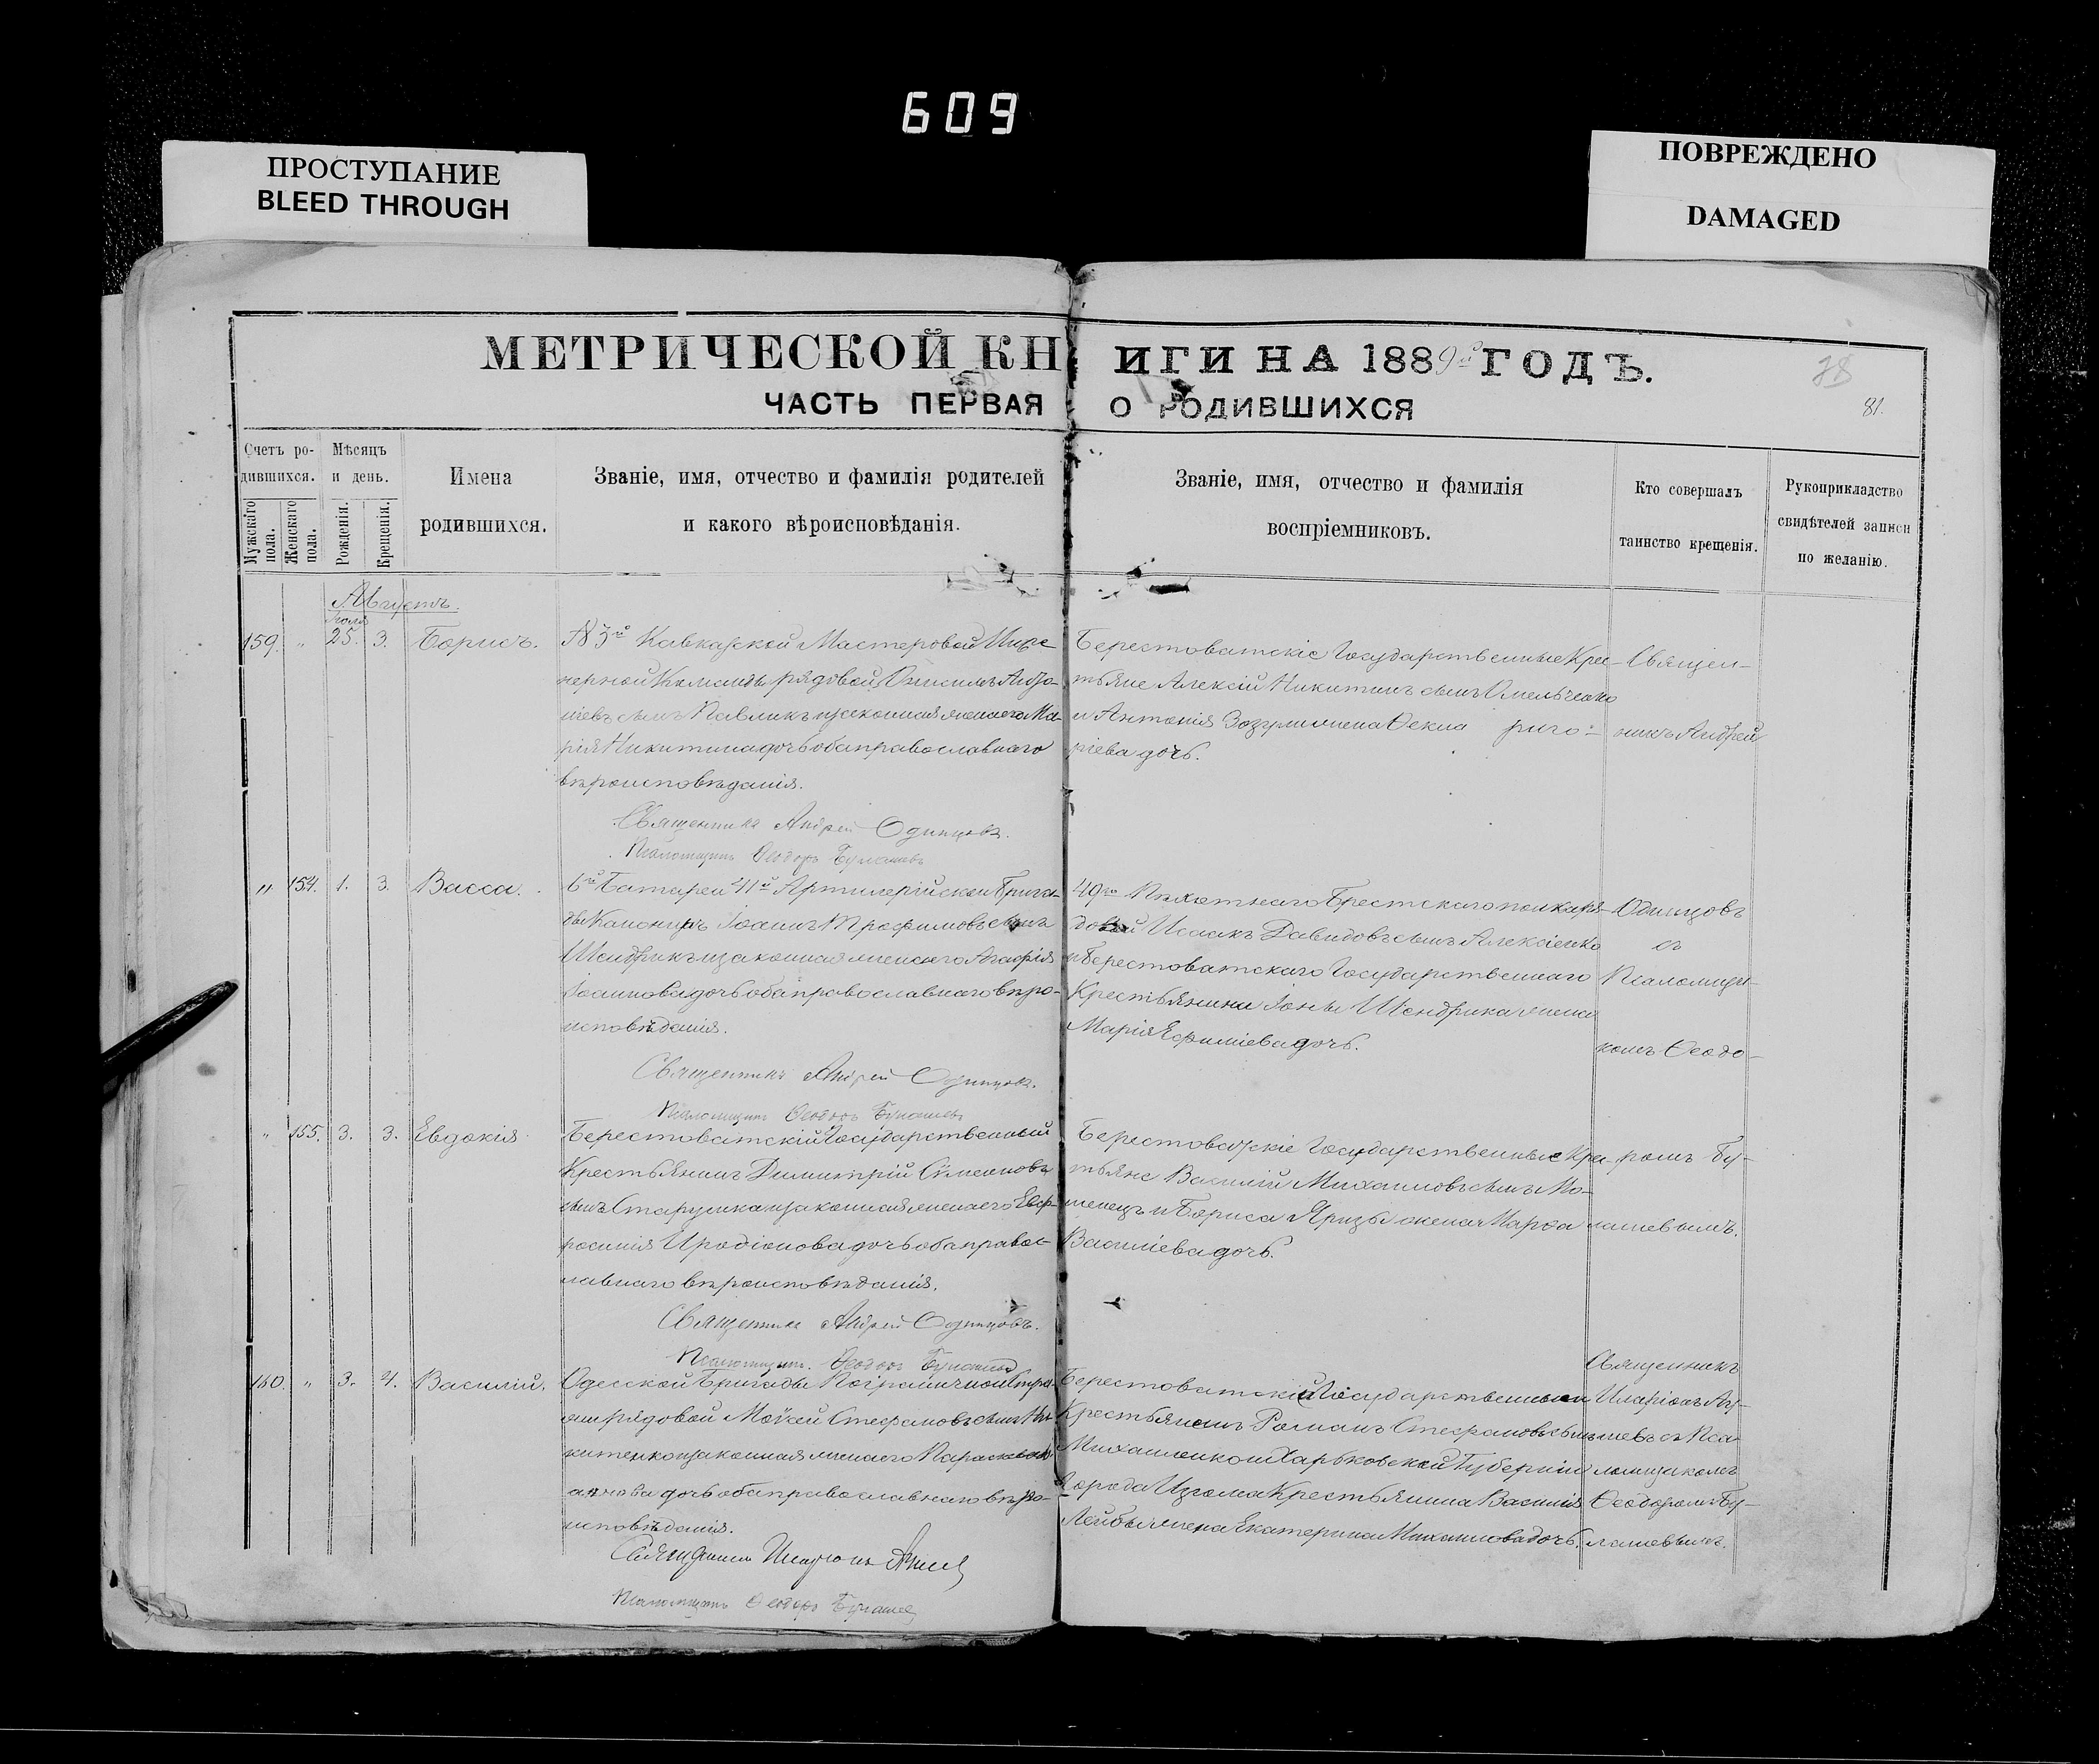 609
ПРОСТУПАНИЕ
BLEED THROUGH
ПОВРЕЖДЕНО
DAMAGED
МЕТРИЧЕСКОЙ КНИГИ НА 1889й ГОДЪ.
78
ЧАСТЬ ПЕРВАЯ О РОДИВШИХСЯ
81.
Счетъ ро-
дившихся.
Мужскаго пола.
Женскаго пола.
Мѣсяцъ
и день.
Рожденія.
Крещенія.
Имена
родившихся.
Званіе, имя, отчество и фамилія родителей
и какого вѣроисповѣданія.
Званіе, имя, отчество и фамилія
воспріемниковъ.
Кто совершалъ
таинство крещенія.
Рукоприкладство
свидѣтелей записи
по желанію.
Августъ.
Іюля
159. „ 25. 3. Борисъ.
Кавказской Мастеровой Инже
нерной Команды рядовой Онисимъ Анто-
ніевъ сынъ Павликъ и законная жена его Ма-
рія Никитина дочь оба православнаго
вѣроисповѣданія.
Священникъ Андрей Одинцовъ.
Псаломщикъ Ѳеодоръ
Берестоватскіе Государственные Крес-
тьяне Алексій Никитинъ сынъ Омельченко
и Антонія Зозули жена Ѳекла риго-
ріева дочь.
Священ-
никъ Андрей
„ 154. 1. 3. Васса.
6й Батареи 41й Артилерійской Брига-
ды Канониръ Іоаннъ Трофимовъ сынъ
Шендрикъ и законная жена его Агафія
Іоаннова дочь оба православнаго вѣро-
исповѣданія.
Священникъ Андрей Одинцовъ.
Псаломщикъ Ѳеодоръ
49го Пѣхотнаго Брестскаго полка ря-
довой Исаакъ Давидовъ сынъ Алексіенко
и Берестоватскаго Государственнаго
Крестьянина Іоны Шендрика жена
Марія Ефиміева дочь.
Одинцовъ
съ
Псаломщи-
комъ Ѳеодо-
„ 155. 3. 3. Евдокія
Берестоватскій Государственный
Крестьянинъ Димитрій Симеоновъ
сынъ и законная жена его Евф-
росинія Иродіонова дочь оба правос-
лавнаго вѣроисповѣданія.
Священникъ Андрей Одинцовъ.
Псаломщикъ Ѳеодоръ
Берестоватскіе Государственные Крес-
тьяне Василій Михаиловъ сынъ Мо-
и Бориса жена Марѳа
Василіева дочь.
ромъ Бу-
лашевымъ.
160. „ 3. 4. Василій.
Одесской Бригады Пограничной Стра-
жи рядовой Моѵсей Стефановъ сынъ Ни-
китенко и законная жена его Параскева
дочь оба православнаго вѣро-
исповѣданія.
Священникъ Иларіонъ
Псаломщикъ Ѳеодоръ
Берестоватскій Государственный
Крестьянинъ Романъ Стефановъ сынъ
Михаиленко и Харьковской Губерніи
города Изюма Крестьянина Василія
жена Екатерина Михаилова дочь.
Священникъ
Иларіонъ
съ Пса-
ломщикомъ
Ѳеодоромъ Бу-
лашевымъ.